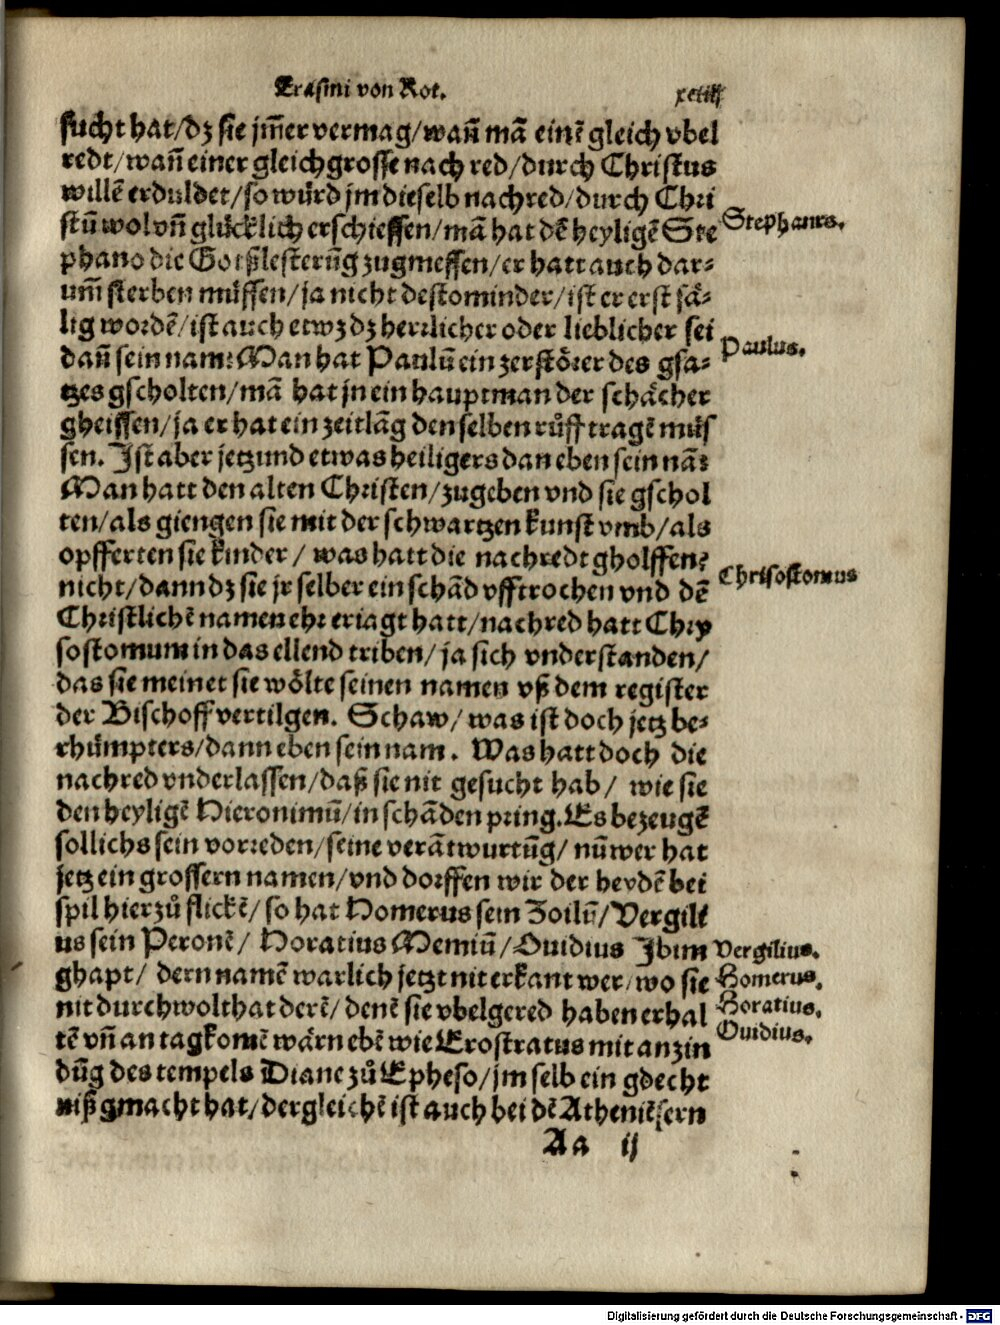 Erasmi von Rot.
sucht hat/dz sie jm̃er vermag/wañ mã einẽ gleich vbel
redt/wañ einer gleich grosse nach red/durch Christus
willẽ erduldet/so wůrd jm dieselb nachred/durch Chri
stũ wol vñ glücklich erschiessen/mã hat dẽ heyligẽ Ste
Stephanus.
phano die Gotßlesterũg zugmessen/er hatt auch dar⸗
um̃ sterben müssen/ja nicht destominder/ist er erst sä⸗
lig wordẽ/ist auch etwz dz herrlicher oder lieblicher sei
dañ sein nam: Man hat Paulũ ein zerstörer des gsa⸗
Paulus.
tzes gscholten/mã hat jn ein hauptman der schächer
gheissen/ja er hat ein zeitlãg den selben růff tragẽ můs
sen. Ist aber jetzund etwas heiligers dan eben sein nã:
Man hatt den alten Christen/zugeben vnd sie gschol
ten/als giengen sie mit der schwartzen kunst vmb/als
opfferten sie kinder/ was hatt die nachredt gholffen?
nicht/dann dz sie jr selber ein schãd vfftrochen vnd dẽ
Chrisostomus
Christlichẽ namen ehr eriagt hatt/nachred hatt Chry
sostomum in das ellend triben/ja sich vnderstanden/
das sie meinet sie wölte seinen namen vß dem register
der Bischoff vertilgen. Schaw/was ist doch jetz be⸗
rhümpters/dann eben sein nam. Was hatt doch die
nachred vnderlassen/daß sie nit gesucht hab/ wie sie
den heyligẽ Hieronimũ/in schãden pring. Es bezeugẽ
sollichs sein vorreden/seine verãtwurtũg/ nũ wer hat
jetz ein grossern namen/vnd dorffen wir der heydẽ bei
spil hierzů flickẽ/so hat Homerus sein Zoilũ/Vergili
us sein Peronẽ/ Horatius Memiũ/Ouidius Ibim
Vergilius.
ghapt/ dern namẽ warlich jetzt nit erkant wer/wo sie
Homerus.
nit durch wolthat derẽ/denẽ sie vbelgered haben erhal
Horatius.
tẽ vñ an tag komẽ wärn ebẽ wie Erostratus mit anzin
Ouidius.
dũg des tempels Diane zů Epheso/jm selb ein gdecht
niß gmacht hat/dergleichẽ ist auch bei dẽ Atheniẽsern
Aa ij
Digitalisierung gefördert durch die Deutsche Forschungsgemeinschaft - DFG